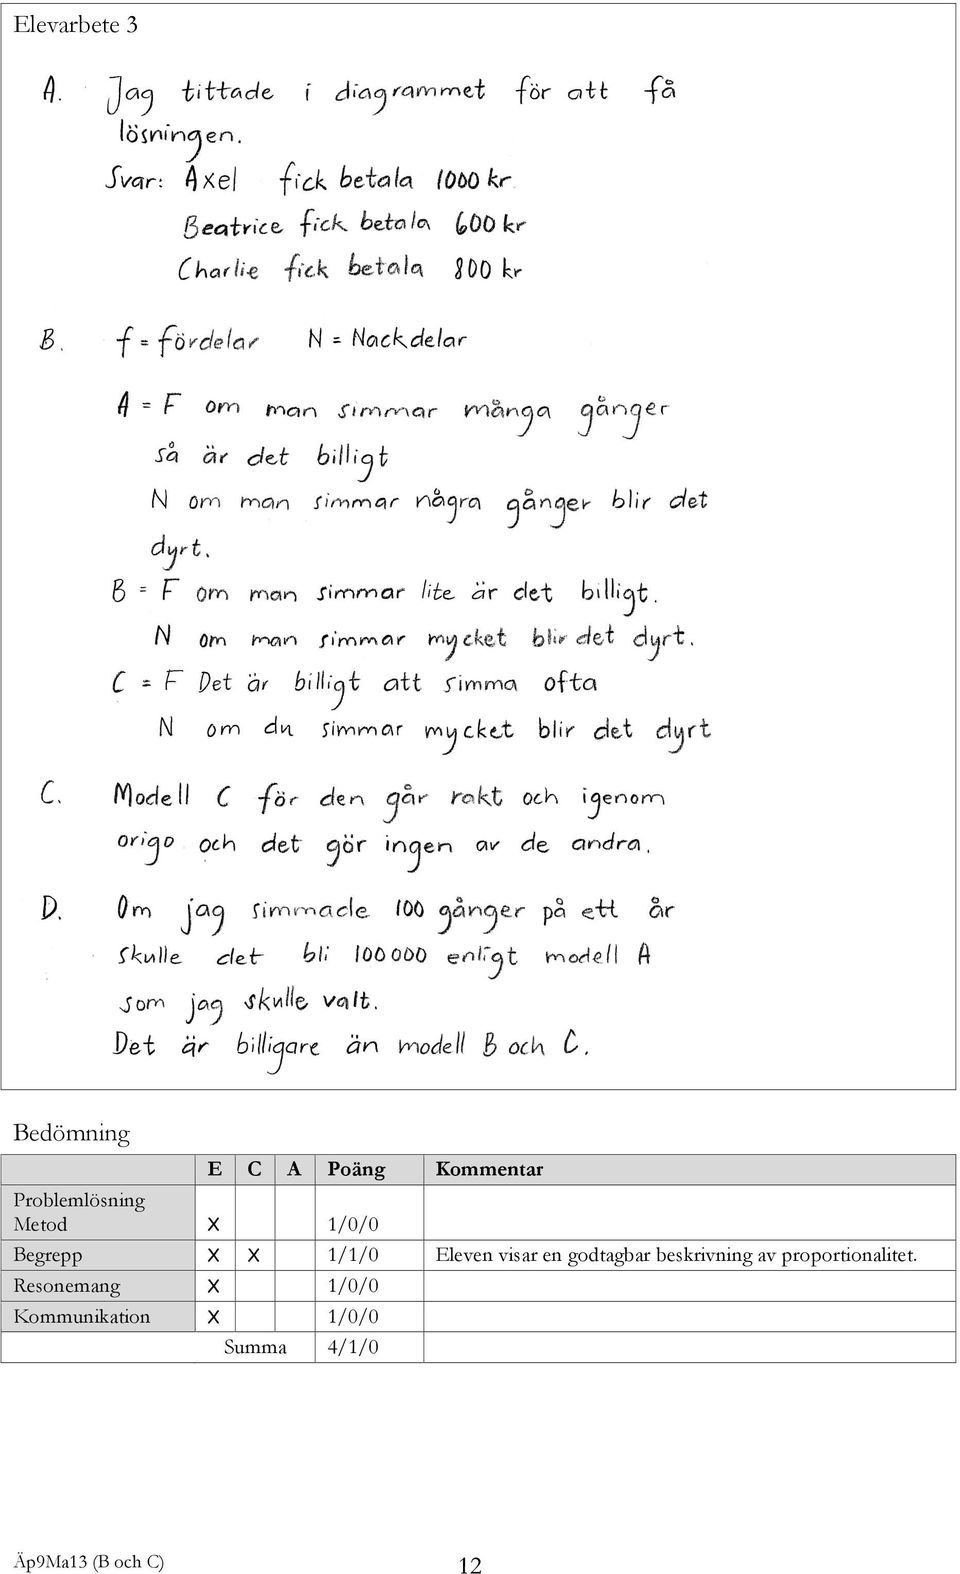 Elevarbete 3
A. Jag tittade i diagrammet för att få
lösningen.
Svar: Axel fick betala 1000 kr.
Beatrice fick betala 600 kr
Charlie fick betala 800 kr
B. f = fördelar N = Nackdelar
A = F om man simmar många gånger
så är det billigt
N om man simmar några gånger blir det
dyrt.
B = F om man simmar lite är det billigt.
N om man simmar mycket blir det dyrt.
C = F Det är billigt att simma ofta
N om du simmar mycket blir det dyrt
C. Modell C för den går rakt och igenom
origo och det gör ingen av de andra.
D. Om jag simmade 100 gånger på ett år
skulle det bli 100 000 enligt modell A
som jag skulle valt.
Det är billigare än modell B och C.
Bedömning
E C A Poäng Kommentar
Problemlösning
Metod X 1/0/0
Begrepp X X 1/1/0 Eleven visar en godtagbar beskrivning av proportionalitet.
Resonemang X 1/0/0
Kommunikation X 1/0/0
Summa 4/1/0
Äp9Ma13 (B och C) 12